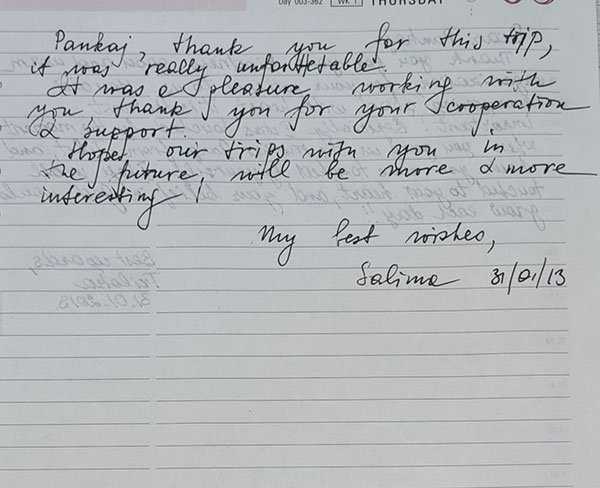 Day 003-362 WK 1 THURSDAY
Pankaj, thank you for this trip,
it was really unforgetable.
It was a pleasure working with
you thank you for your cooperation
& support.
Hope, our trips with you in
the future, will be more & more
interesting!
My best wishes,
Salima 31/01/13